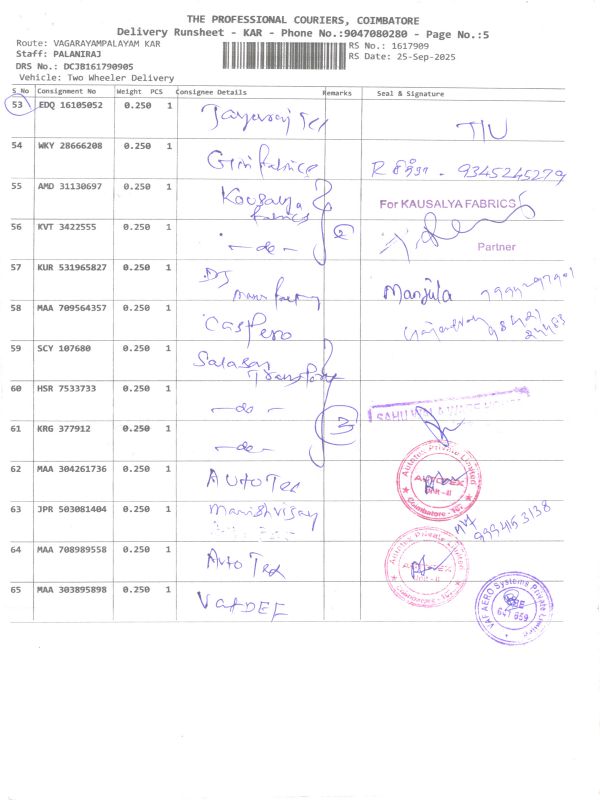 THE PROFESSIONAL COURIERS, COIMBATORE
Delivery Runsheet - KAR - Phone No.:9047080280 - Page No.:5
Route: VAGARAYAMPALAYAM KAR
RS No.: 1617909
Staff: PALANIRAJ
RS Date: 25-Sep-2025
DRS No.: DCJB161790905
Vehicle: Two Wheeler Delivery
S_No Consignment No Weight PCS Consignee Details Remarks Seal & Signature
53 EDQ 16105052 0.250 1
54 WKY 28666208 0.250 1 9345245279
55 AMD 31130697 0.250 1 Kousalya Fabrics For KAUSALYA FABRICS
56 KVT 3422555 0.250 1 - do - 2 Partner
57 KUR 531965827 0.250 1 DJ Manjula
58 MAA 709564357 0.250 1
59 SCY 107680 0.250 1 Salasar Transport
60 HSR 7533733 0.250 1 - do -
61 KRG 377912 0.250 1 - do - 3
62 MAA 304261736 0.250 1 Auto Tex Autotex Private Limited AUTOTEX
63 JPR 503081404 0.250 1 Manish Vijay
64 MAA 708989558 0.250 1 Auto Tex Autotex Private Limited
65 MAA 303895898 0.250 1 VAF AERO Systems Private Limited 641 659